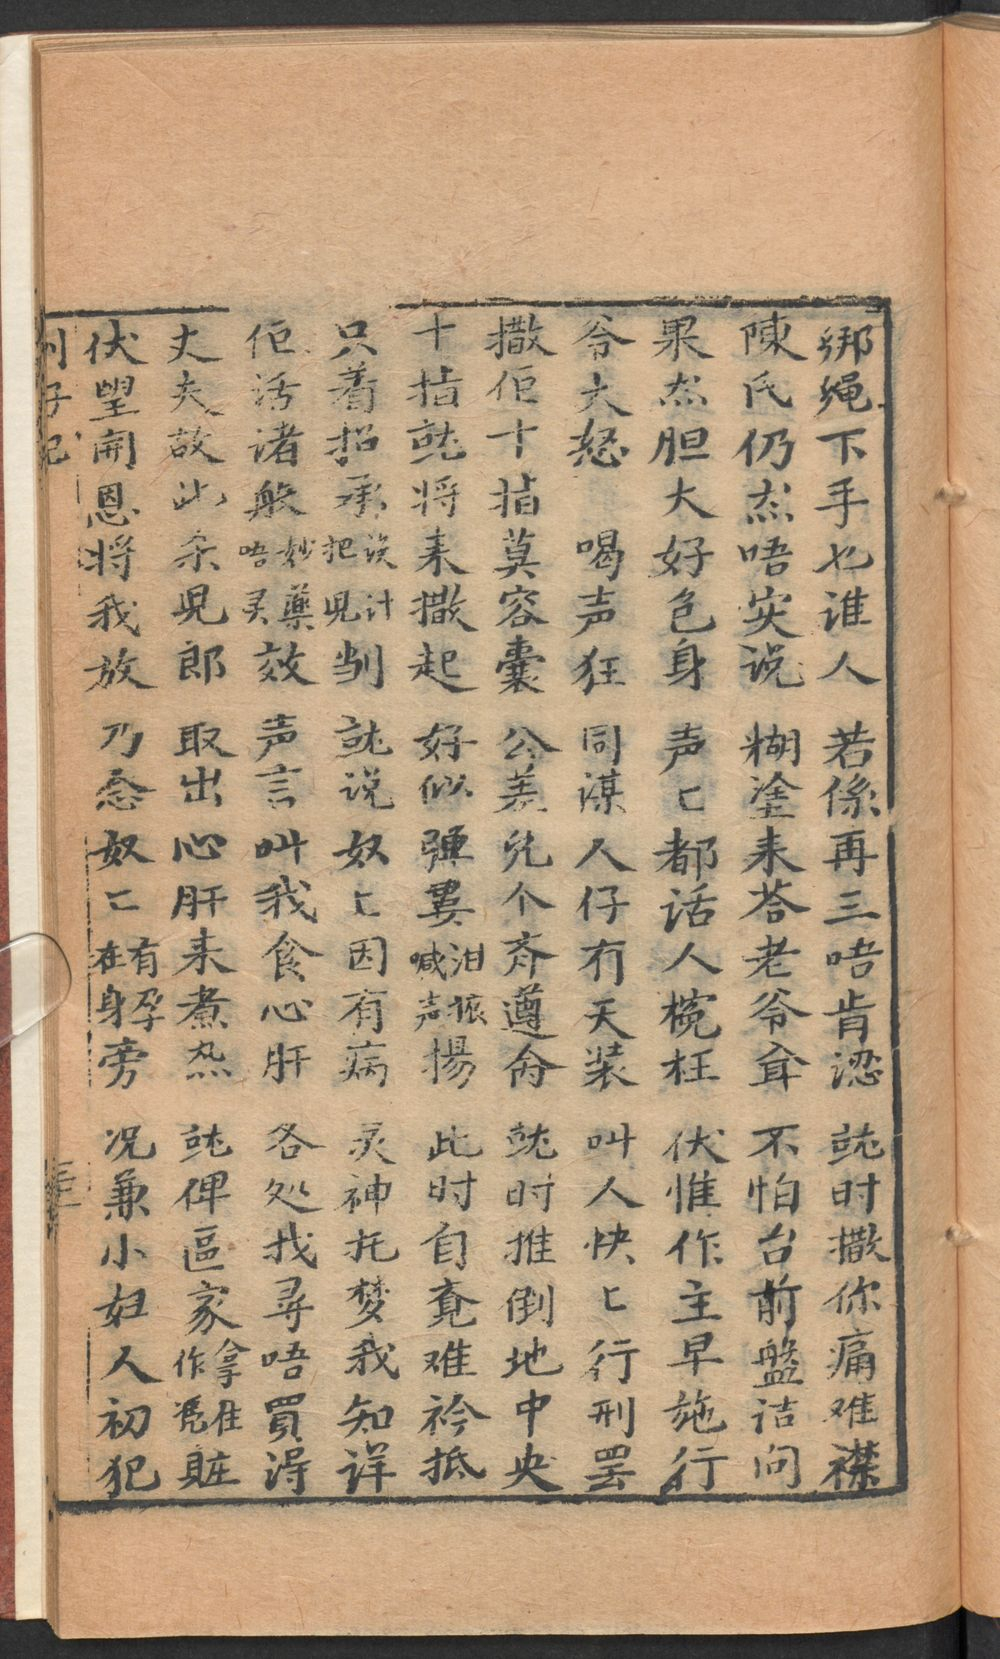 绑绳下手乜谁人　若係再三唔肯認　就时撒你痛难襟
陳氏仍然唔实说　糊塗来荅老爷㪯　不怕台前盤诘问
果然胆大好色身　声〻都话人㮀枉　伏惟作主早施行
爷大怒　喝声狂　同谋人仔冇天装　叫人快〻行刑罢
撒佢十指莫容囊　公差児个斉遵命　就时推倒地中央
十指就将来撒起　好似弹婁喊声泪振揚　此时自竟难衿抵
只着招承把児误计刣　就说奴〻因有病　灵神托梦我知详
佢活诸般唔灵妙藥效　声言叫我食心肝　各处找尋唔買淂
丈夫故此杀児郎　取出心肝来煮热　就俾區家作凴拿住賍
伏望開恩将我放　乃念奴〻在身有孕旁　况兼小妇人初犯
刣子记